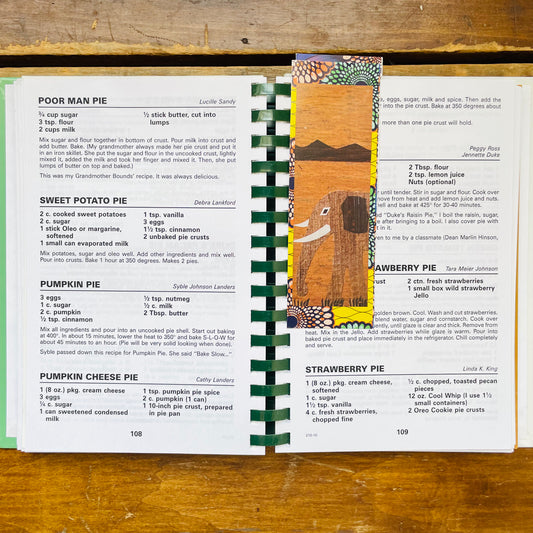 POOR MAN PIE
Lucille Sandy
¾ cup sugar
3 tsp. flour
2 cups milk
½ stick butter, cut into
lumps
Mix sugar and flour together in bottom of crust. Pour milk into crust and
add butter. Bake. (My grandmother always made her pie crust and put it
in an iron skillet. She put the sugar and flour in the uncooked crust, lightly
mixed it, added the milk and took her finger and mixed it. Then, she put
lumps of butter on top and baked.)
This was my Grandmother Bounds' recipe. It was always delicious.
SWEET POTATO PIE
Debra Lankford
2 c. cooked sweet potatoes
2 c. sugar
1 stick Oleo or margarine,
softened
1 small can evaporated milk
1 tsp. vanilla
3 eggs
1½ tsp. cinnamon
2 unbaked pie crusts
Mix potatoes, sugar and oleo well. Add other ingredients and mix well.
Pour into crusts. Bake 1 hour at 350 degrees. Makes 2 pies.
PUMPKIN PIE
Syble Johnson Landers
3 eggs
1 c. sugar
2 c. pumpkin
½ tsp. cinnamon
½ tsp. nutmeg
½ c. milk
2 Tbsp. butter
Mix all ingredients and pour into an uncooked pie shell. Start out baking
at 400°. In about 15 minutes, lower the heat to 350° and bake S-L-O-W for
about 45 minutes to an hour. (Pie will be very solid looking when done).
Syble passed down this recipe for Pumpkin Pie. She said "Bake Slow..."
PUMPKIN CHEESE PIE
Cathy Landers
1 (8 oz.) pkg. cream cheese
3 eggs
¾ c. sugar
1 can sweetened condensed
milk
1 tsp. pumpkin pie spice
2 c. pumpkin (1 can)
1 10-inch pie crust, prepared
in pie pan
108
s, eggs, sugar, milk and spice. Then add the
into crust. Bake at 350 degrees about
more than one pie crust will hold.
Peggy Ross
Jennette Duke
2 Tbsp. flour
2 tsp. lemon juice
Nuts (optional)
until tender. Stir in sugar and flour. Cook over
move from heat and add lemon juice and nuts.
shell and bake at 425° for 30-40 minutes.
and "Duke's Raisin Pie," I boil the raisin, sugar,
after bringing to a boil. I also cover pie with
en to me by a classmate (Dean Marlin Hinson,
AWBERRY PIE
Tara Maier Johnson
2 ctn. fresh strawberries
1 small box wild strawberry
Jello
golden brown. Cool. Wash and cut strawberries.
blend water, sugar and cornstarch. Cook over
ently, until glaze is clear and thick. Remove from
heat. Mix in the Jello. Add strawberries while glaze is warm. Pour into
baked pie crust and place immediately in the refrigerator. Chill completely
and serve.
STRAWBERRY PIE
Linda K. King
1 (8 oz.) pkg. cream cheese,
softened
1 c. sugar
1½ tsp. vanilla
4 c. fresh strawberries,
chopped fine
½ c. chopped, toasted pecan
pieces
12 oz. Cool Whip (I use 1½
small containers)
2 Oreo Cookie pie crusts
109